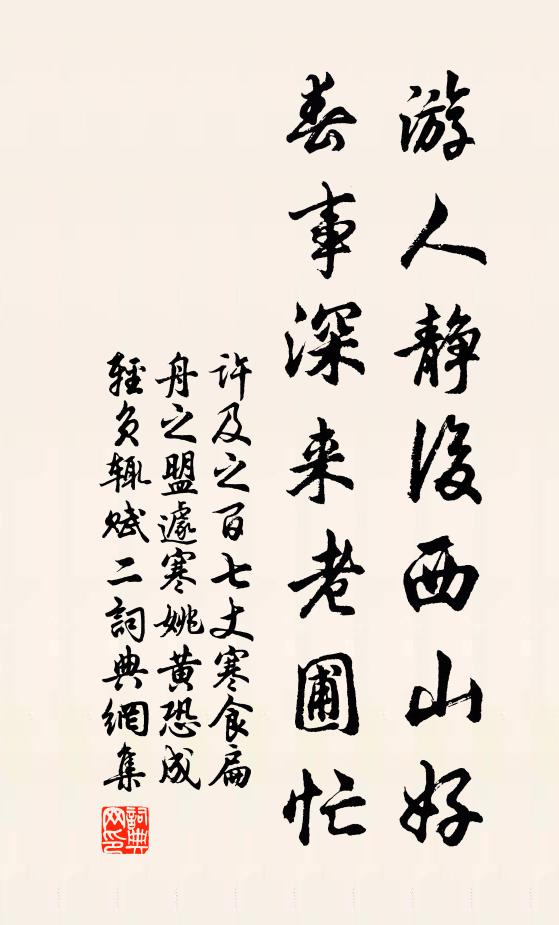 游人静後西山好
春事深来老圃忙
许及之百七丈寒食扁
舟之盟遽寒姚黄恐成
輕负辄赋二詞典網集
詞典
网印